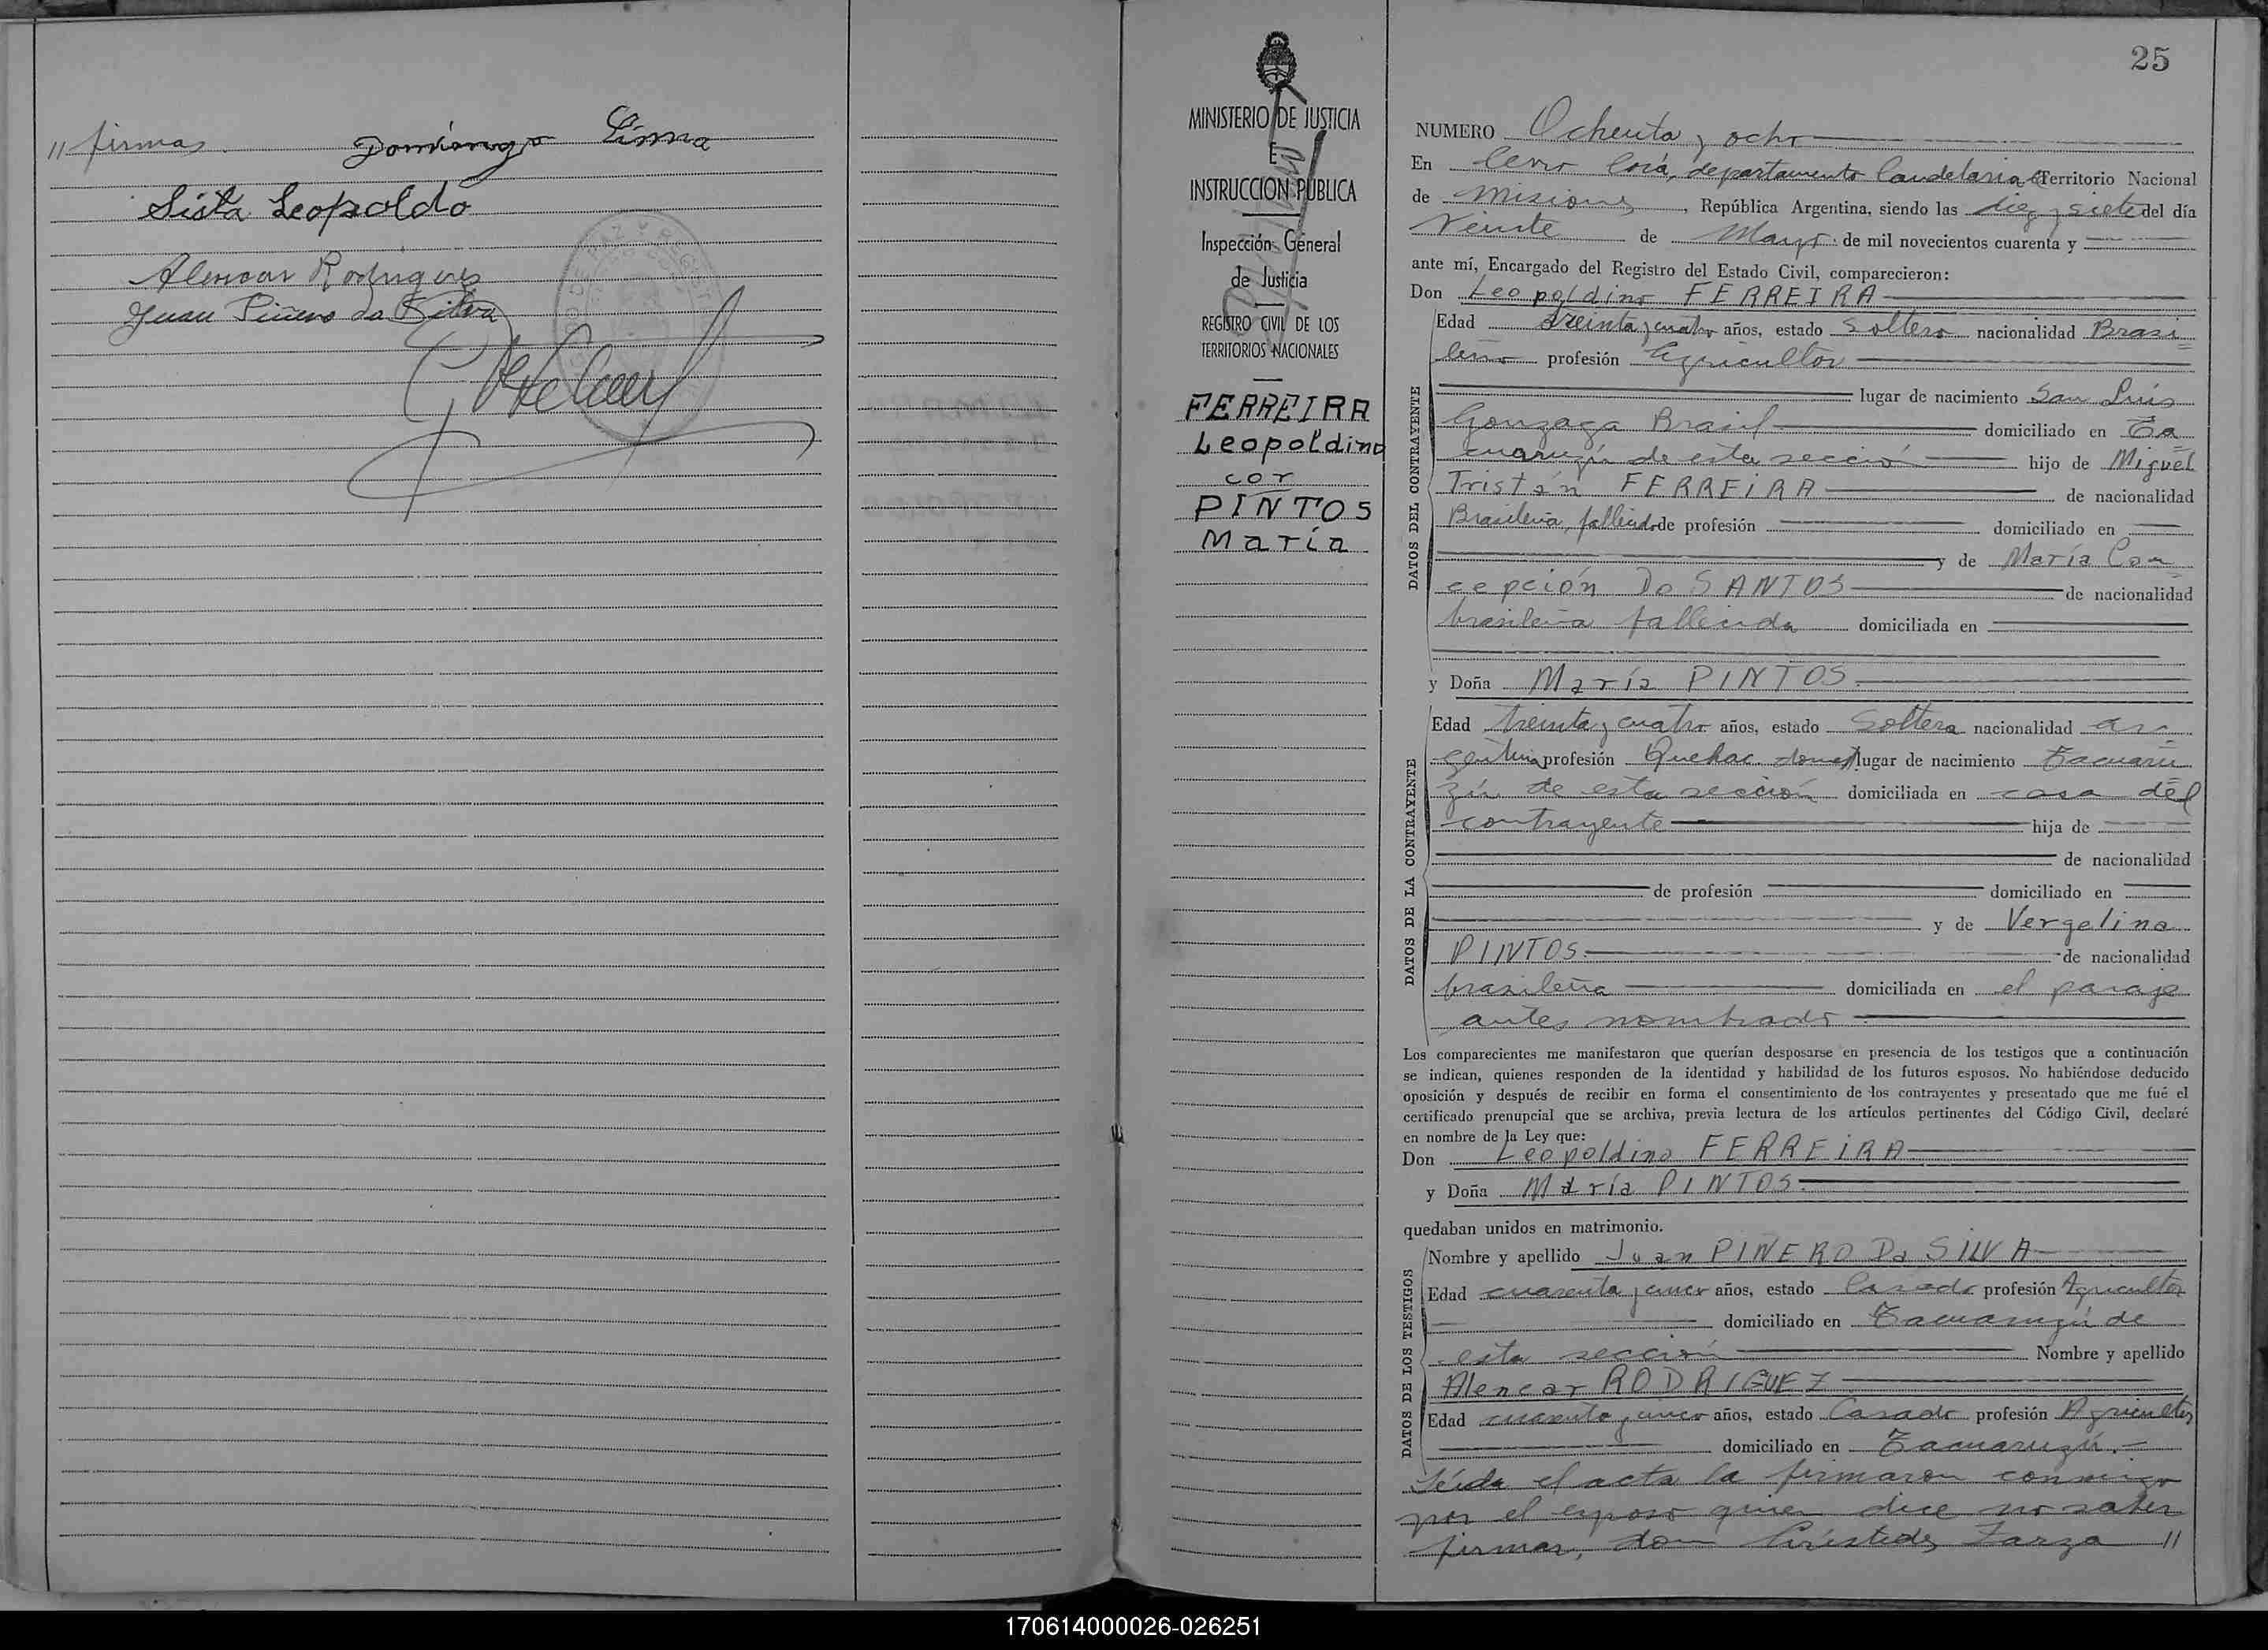 " firmas. Domingo Linna
Sista Leopoldo
Alencar Rodrigues
Juan Piñero da Silva
MINISTERIO DE JUSTICIA
E
INSTRUCCION PUBLICA
Inspección General
de Justicia
REGISTRO CIVIL DE LOS
TERRITORIOS NACIONALES
FERREIRA
Leopoldino
con
PINTOS
María
25
NUMERO Ochenta y ocho
En Cerro Corá, departamento Candelaria Territorio Nacional
de Misiones, República Argentina, siendo las diez y siete del día
Veinte de Mayo de mil novecientos cuarenta y
ante mí, Encargado del Registro del Estado Civil, comparecieron:
Don Leopoldino FERREIRA
DATOS DEL CONTRAYENTE
Edad treinta y cuatro años, estado Soltero nacionalidad Brasi
leño profesión Agricultor
lugar de nacimiento San Luis
Gonzaga Brasil domiciliado en Ta
cuaruzú de esta sección hijo de Miguel
Tristán FERREIRA de nacionalidad
Brasileña, fallecido de profesión domiciliado en
y de María Con
cepción Do SANTOS de nacionalidad
brasileña fallecida domiciliada en
y Doña María PINTOS
DATOS DE LA CONTRAYENTE
Edad treinta y cuatro años, estado Soltera nacionalidad ar
gentina profesión Quehac. domest lugar de nacimiento Tacuaru
zú de esta sección domiciliada en casa del
contrayente hija de
de nacionalidad
de profesión domiciliado en
y de Vergelina
PINTOS de nacionalidad
brasileña domiciliada en el paraje
antes nombrado
Los comparecientes me manifestaron que querían desposarse en presencia de los testigos que a continuación
se indican, quienes responden de la identidad y habilidad de los futuros esposos. No habiéndose deducido
oposición y después de recibir en forma el consentimiento de los contrayentes y presentado que me fué el
certificado prenupcial que se archiva, previa lectura de los artículos pertinentes del Código Civil, declaré
en nombre de la Ley que:
Don Leopoldino FERREIRA
y Doña María PINTOS
quedaban unidos en matrimonio.
DATOS DE LOS TESTIGOS
Nombre y apellido Juan PIÑERO Da SILVA
Edad cuarenta y cinco años, estado Casado profesión Agricultor
domiciliado en Tacuaruzú de
esta sección Nombre y apellido
Alencar RODRIGUEZ
Edad cuarenta y cinco años, estado Casado profesión Agricultor
domiciliado en Tacuaruzú.-
Leida el acta la firmaron conmigo
por el esposo quien dice no saber
firmar, don Arístides Zarza "
170614000026-026251